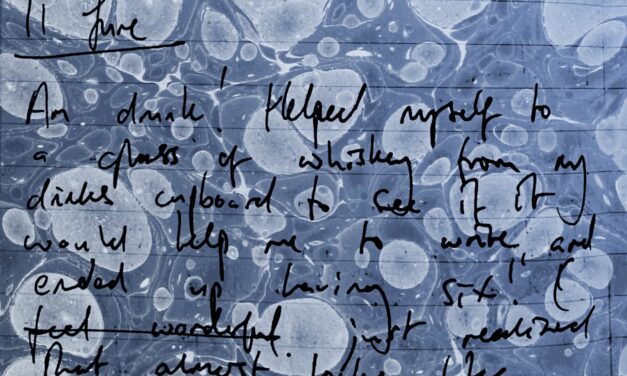 11 June
Am drunk! Helped myself to
a glass of whiskey from my
drinks cupboard to see if it
would help me to write and
ended up having six! (I
feel wonderful. just realized
that almost looks like